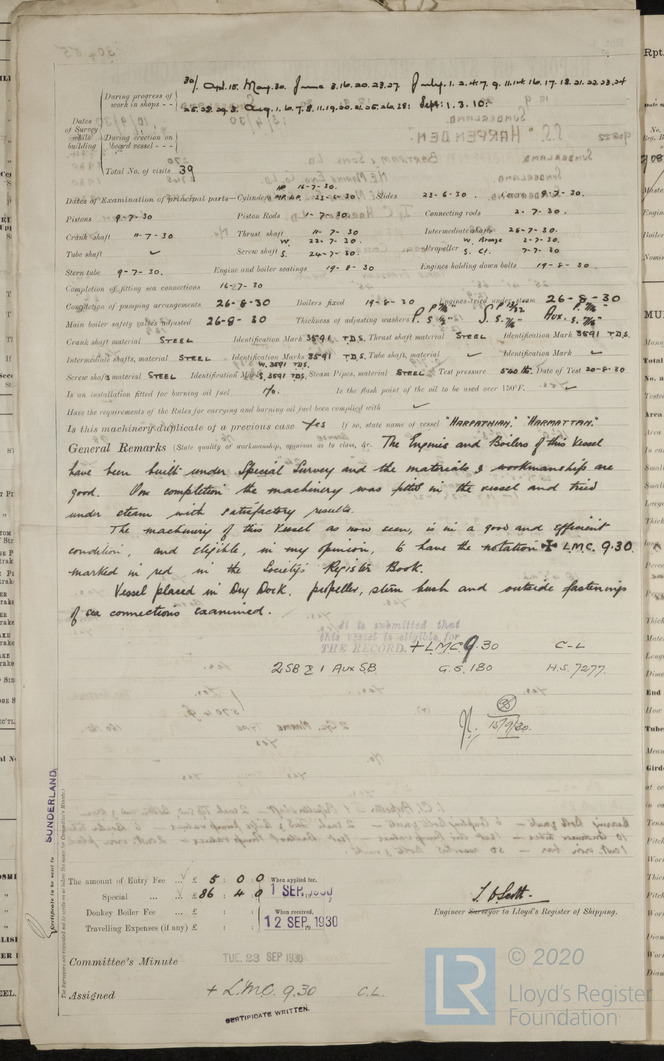 During progress of work in shops - - 30/ Apl. 15. May. 30. June 3. 16. 20. 23. 27. July. 1. 2. 4. 7. 9. 11. 14. 16. 17. 18. 21. 22. 23. 24
25. 28. 29. 31. Aug. 1. 6. 7. 8. 11. 19. 20. 21. 25. 26. 28. Sept. 1. 3. 10.
Dates of Survey while building
During erection on board vessel - - -
Total No. of visits 39
Dates of Examination of principal parts—Cylinders 23-6-30 Slides 23-6-30 9-7-30.
Pistons 9-7-30 Piston Rods 1-7-30. Connecting rods 2-7-30.
Crank shaft 11-7-30 Thrust shaft 11-7-30 Intermediate shafts 25-7-30.
Tube shaft ✓ Screw shaft W. 22-7-30. S. 24-7-30. Propeller W. Bronze 2-7-30. S. C.I. 7-7-30
Stern tube 9-7-30. Engine and boiler seatings 19-8-30 Engines holding down bolts 19-8-30.
Completion of fitting sea connections 16-7-30
Completion of pumping arrangements 26-8-30 Boilers fixed 19-8-30 Engines tried under steam 26-8-30
Main boiler safety valves adjusted 26-8-30 Thickness of adjusting washers
Crank shaft material STEEL Identification Mark 3591 T.D.S. Thrust shaft material STEEL Identification Mark 3591 T.D.S.
Intermediate shafts, material STEEL Identification Marks 3591 T.D.S. Tube shaft, material ✓ Identification Mark ✓
Screw shaft, material STEEL Identification Mark W. 3591 T.D.S. S. 3591 T.D.S. Steam Pipes, material STEEL Test pressure 540 lbs. Date of Test 20-8-30
Is an installation fitted for burning oil fuel No. Is the flash point of the oil to be used over 150°F. ✓
Have the requirements of the Rules for carrying and burning oil fuel been complied with ✓
Is this machinery duplicate of a previous case Yes If so, state name of vessel "HARPATHIAN," "HARMATTAN."
General Remarks (State quality of workmanship, opinions as to class, &c. The Engines and Boilers of this Vessel
have been built under Special Survey and the materials & workmanship are
good. On completion the machinery was fitted in the vessel and tried
under steam with satisfactory results.
The machinery of this Vessel as now seen, is in a good and efficient
condition, and eligible, in my opinion, to have the notation ✠ LMC. 9.30.
marked in red in the Society's Register Book.
Vessel placed in Dry Dock, propeller, stern bush and outside fastenings
of sea connections examined.
It is submitted that
this vessel is eligible for
THE RECORD. + LMC 9.30 C-L
2 SB & 1 Aux SB. G.S. 180 H.S. 7277.
15/9/30.
SUNDERLAND
Certificate to be sent to
The amount of Entry Fee ... £ 5 : 0 : 0 When applied for,
Special ... £ 86 : 4 : 0 1 SEP. 1930
Donkey Boiler Fee ... £ : : When received,
Travelling Expenses (if any) £ : : 12 SEP. 1930
Engineer Surveyor to Lloyd's Register of Shipping.
Committee's Minute TUE. 23 SEP 1930
Assigned + L.M.C. 9.30 C.L.
CERTIFICATE WRITTEN.
© 2020
LR Lloyd's Register
Foundation